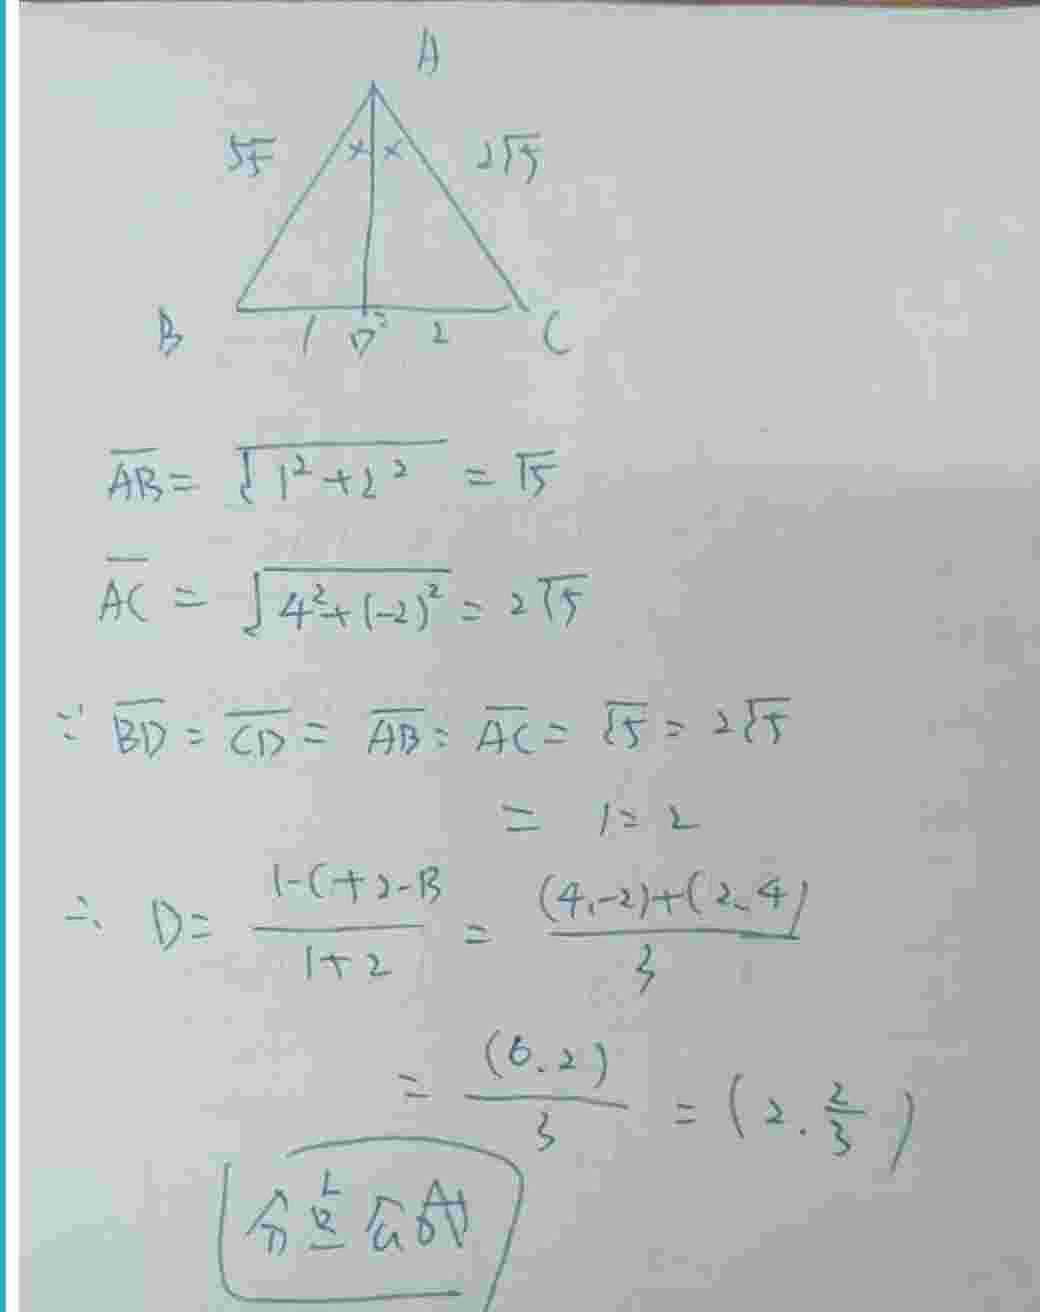 A
√5 2√5
B 1 D 2 C
AB = √(1²+2²) = √5
AC = √(4²+(-2)²) = 2√5
∵ BD : CD = AB : AC = √5 : 2√5
= 1 : 2
∴ D = (1·C+2·B)/(1+2) = ((4,-2)+(2,4))/3
= (6,2)/3 = (2, 2/3)
分點公式